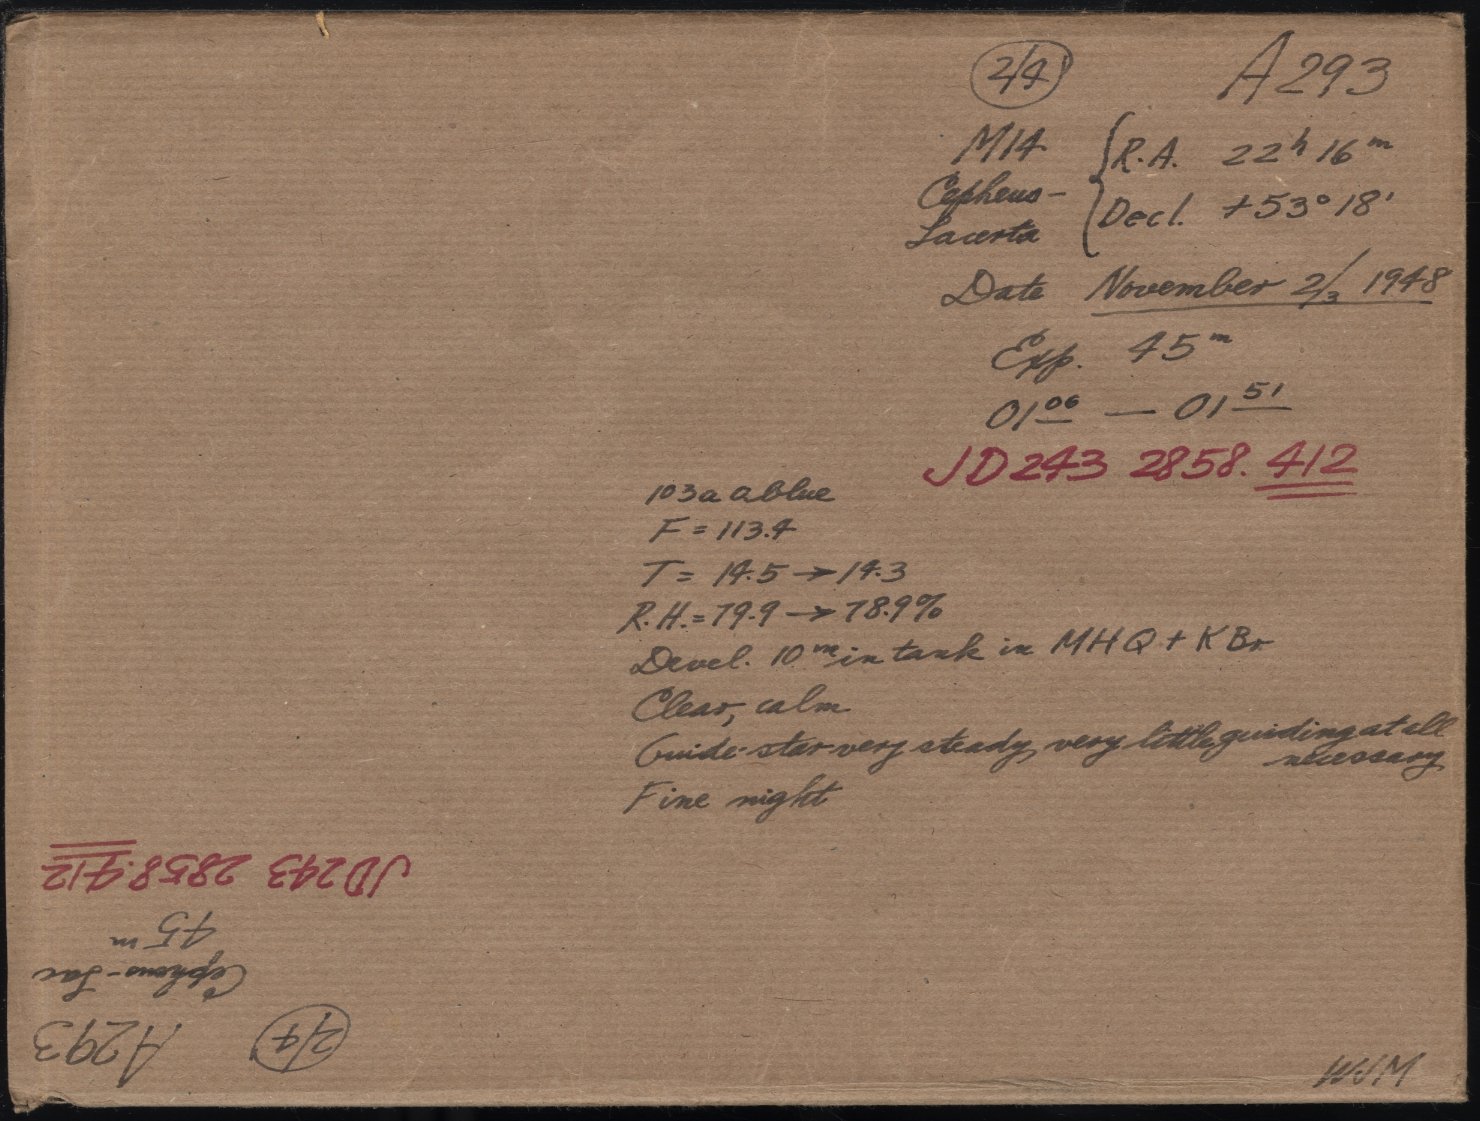 2/4 A293
M14 R.A. 22h 16m
Cepheus-
Lacerta Decl. +53° 18'
Date November 2/3 1948
Exp. 45m
01 06 — 01 51
JD243 2858.412
103a a blue
F = 113.4
T = 14.5 → 14.3
R.H. = 79.9 → 78.9%
Devel. 10m in tank in MHQ + KBr
Clear, calm
Guide star very steady, very little guiding at all
necessary
Fine night
WJM
A293 2/4
Cepheus-Lac
45m
JD243 2858.412